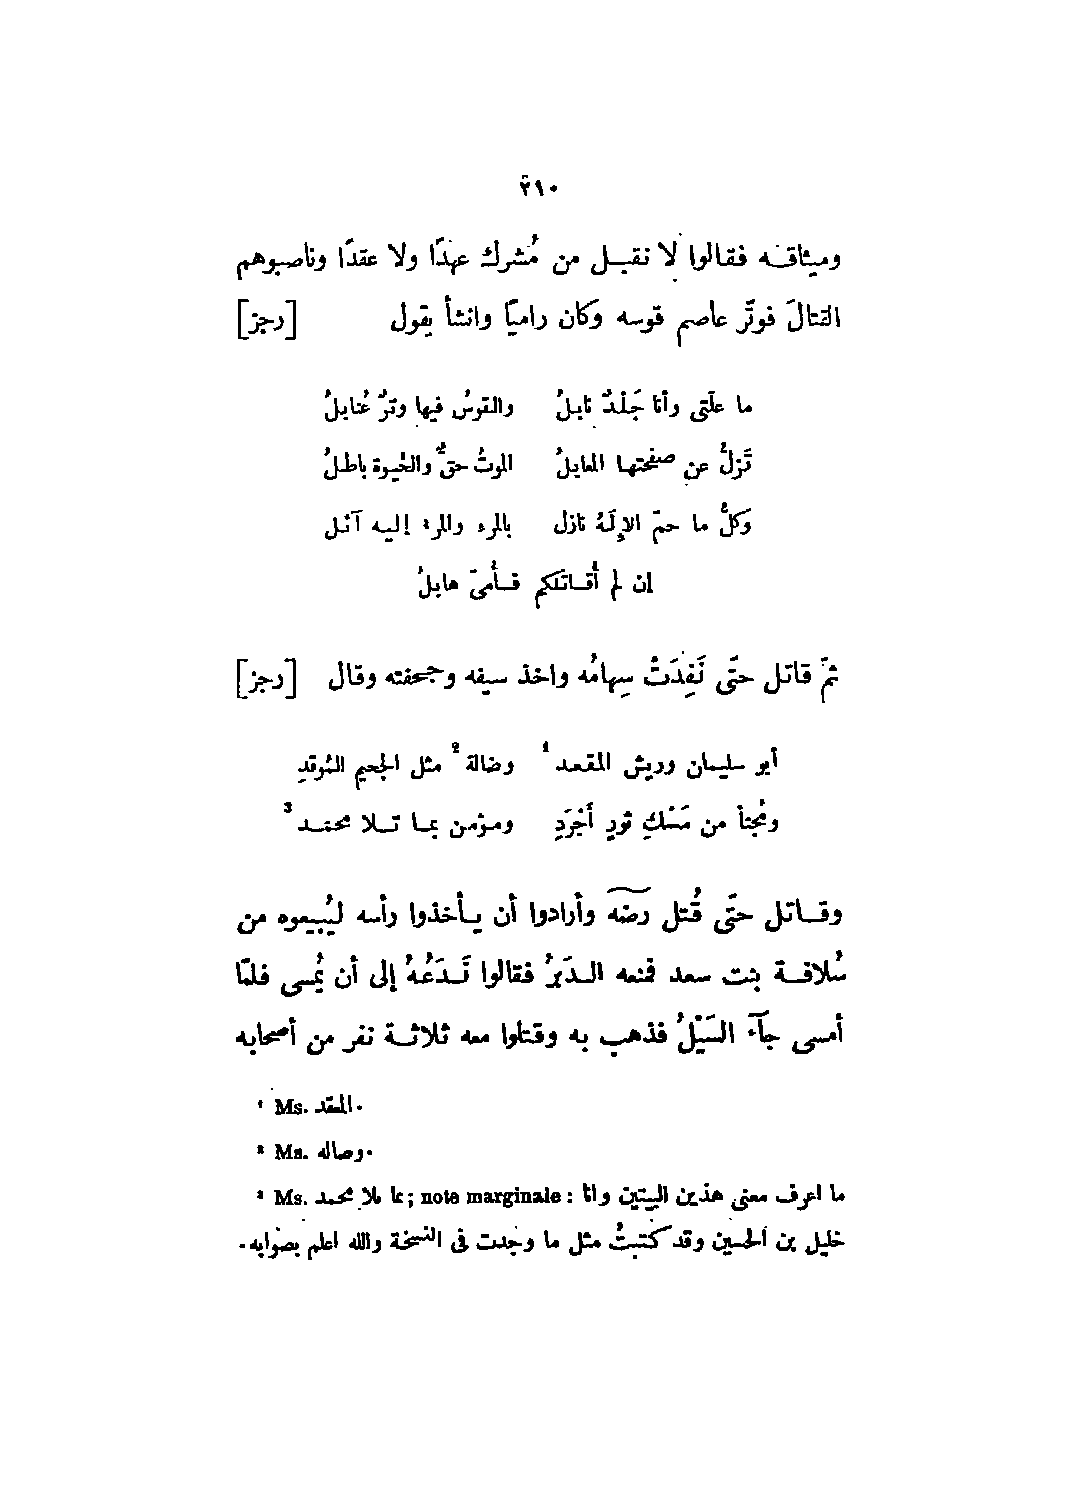 ٢١٠
وميثاقـه فقالوا لا نقبـل من مُشرك عهدًا ولا عقدًا وناصبوهم
القتالَ فوتّر عاصم قوسه وكان راميًا وانشأ يقول [رجز]
ما علّتى وأنا جَلْدٌ نابلُ والقوسُ فيها وترٌ عُنابلُ
تَزلُّ عن صفحتها المعابلُ الموتُ حقٌّ والحيوة باطلُ
وَكلُّ ما حمّ الإِلَهُ نازل بالمرء والمرء إليه آئل
ان لم أُقاتلكم فأُمّى هابلُ
ثمّ قاتل حتَّى نَفِدَتْ سِهامُه واخذ سيفه وجحفته وقال [رجز]
أبو سليمان وريش المقعد ¹ وضالة ² مثل الجحيم الموقدِ
ومُجنأ من مَسْكِ ثورٍ أَجْرَدِ ومؤمن بما تلا محمد ³
وقاتل حتَّى قُتل رضّه وأرادوا أن يأخذوا رأسه ليُبيعوه من
سُلافة بنت سعد فمنعه الدَبْرُ فقالوا نَدَعُهُ إلى أن يُمسى فلمّا
أمسى جآء السَيْلُ فذهب به وقتلوا معه ثلاثة نفر من أصحابه
¹ Ms. المقد.
² Ms. وصاله.
³ Ms. ما ىلا محمد; note marginale : ما اعرف معنى هذين البيتين وانا
خليل بن الحسين وقد كتبتُ مثل ما وجدت فى النسخة والله اعلم بصوابه.